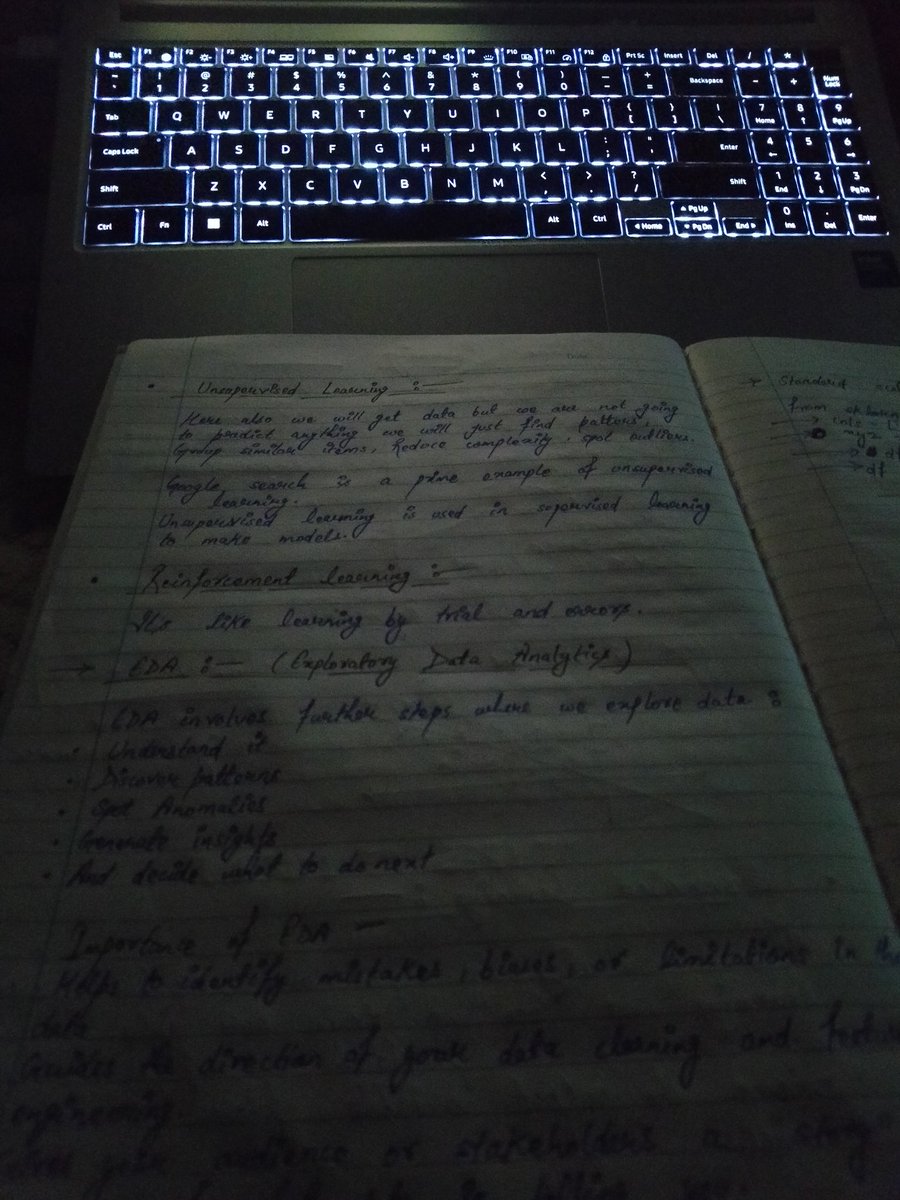 Esc F1 F2 F3 F4 F5 F6 F7 F8 F9 F10 F11 F12 Prt Sc Insert Del / *
~ ` ! 1 @ 2 # 3 $ 4 % 5 ^ 6 & 7 * 8 ( 9 ) 0 _ - + = Backspace - + Num Lock
Tab Q W E R T Y U I O P { [ } ] | \ 7 Home 8 ↑ 9 PgUp
Caps Lock A S D F G H J K L : ; " ' Enter 4 ← 5 6 →
Shift Z X C V B N M < , > . ? / Shift 1 End 2 ↓ 3 PgDn
Ctrl Fn Alt Alt Ctrl ◄ Home ▲ PgUp ▼ PgDn End ► 0 Ins . Del Enter
Unsupervised Learning :—
Here also we will get data but we are not going
to predict anything we will just find patters,
Group similar items, Reduce complexity, spot outliers.
Google search is a prime example of unsupervised
learning.
Unsupervised learning is used in supervised learning
to make models.
Reinforcement learning :—
Its like learning by trial and errors.
→ EDA :— (Exploratory Data Analytics)
EDA involves further steps where we explore data :
• Understand it
• Discover patterns
• Spot Anomalies
• Generate insights
• And decide what to do next
Importance of EDA —
Helps to identify mistakes, biases, or limitations in the
data
Guides the direction of your data cleaning and
engineering
your audience or stakeholders a "story"
→ Standard
from
df
df